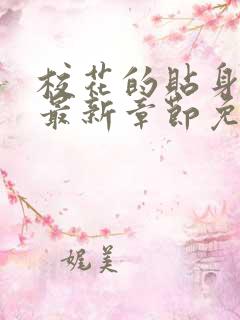 校花的贴身
最新章节免
娓美